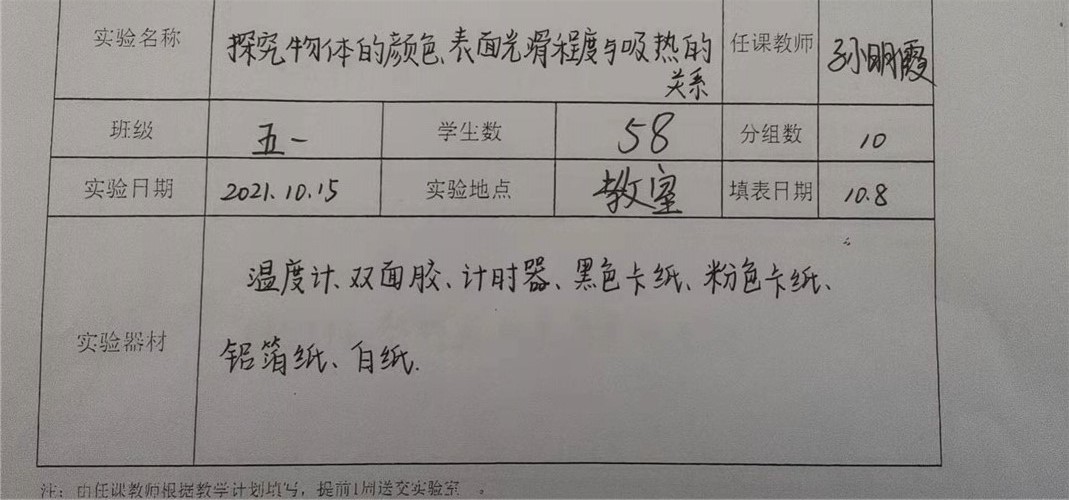 实验名称 探究物体的颜色、表面光滑程度与吸热的 任课教师 孙明霞
关系
班级 五一 学生数 58 分组数 10
实验日期 2021.10.15 实验地点 教室 填表日期 10.8
温度计、双面胶、计时器、黑色卡纸、粉色卡纸、
实验器材
铝箔纸、白纸.
注：由任课教师根据教学计划填写，提前1周送交实验室 。